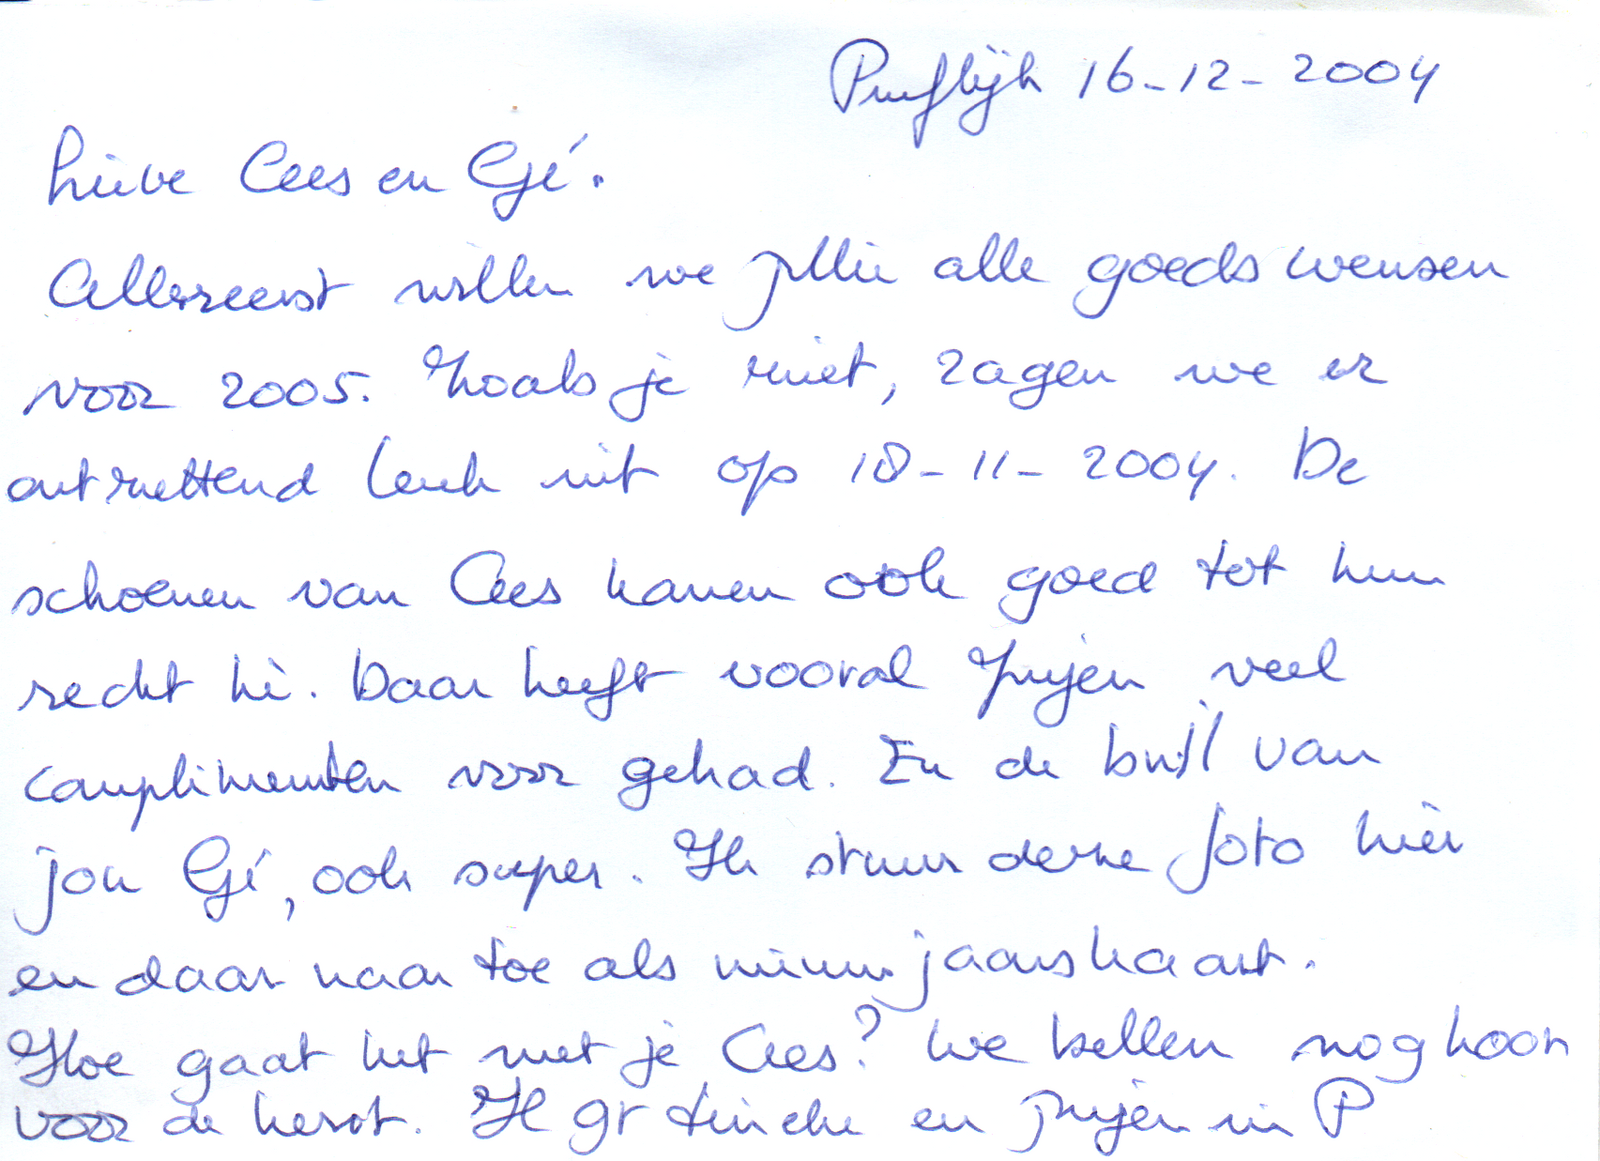 Puiflijk 16-12-2004
Lieve Cees en Gé.
Allereerst willen we jullie alle goeds wensen
voor 2005. Zoals je ziet, zagen we er
ontzettend leuk uit op 18-11-2004. De
schoenen van Cees komen ook goed tot hun
recht hè. Daar heeft vooral veel
complimenten voor gehad. En de bril van
jou Gé, ook super. Ik stuur deze foto hier
en daar naar toe als nieuwjaarskaart.
Hoe gaat het met je Cees? We bellen nog hoor
voor de kerst. gr en in P